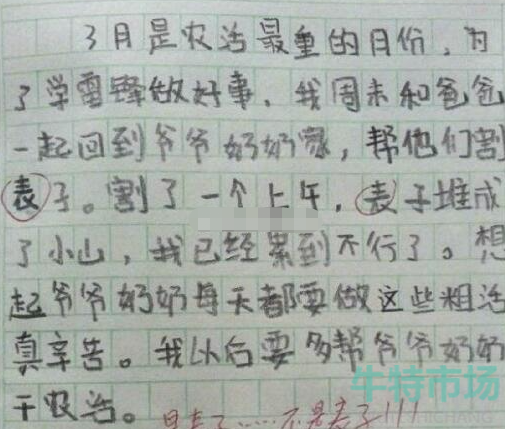 3月是农活最重的月份,为
了学雷锋做好事,我周末和爸爸
一起回到爷爷奶奶家,帮他们割
表子。割了一个上午,表子堆成
了小山,我已经累到不行了。想
起爷爷奶奶每天都要做这些粗活
真辛苦。我以后要多帮爷爷奶奶
干农活。
不是表子!!!
牛特市场